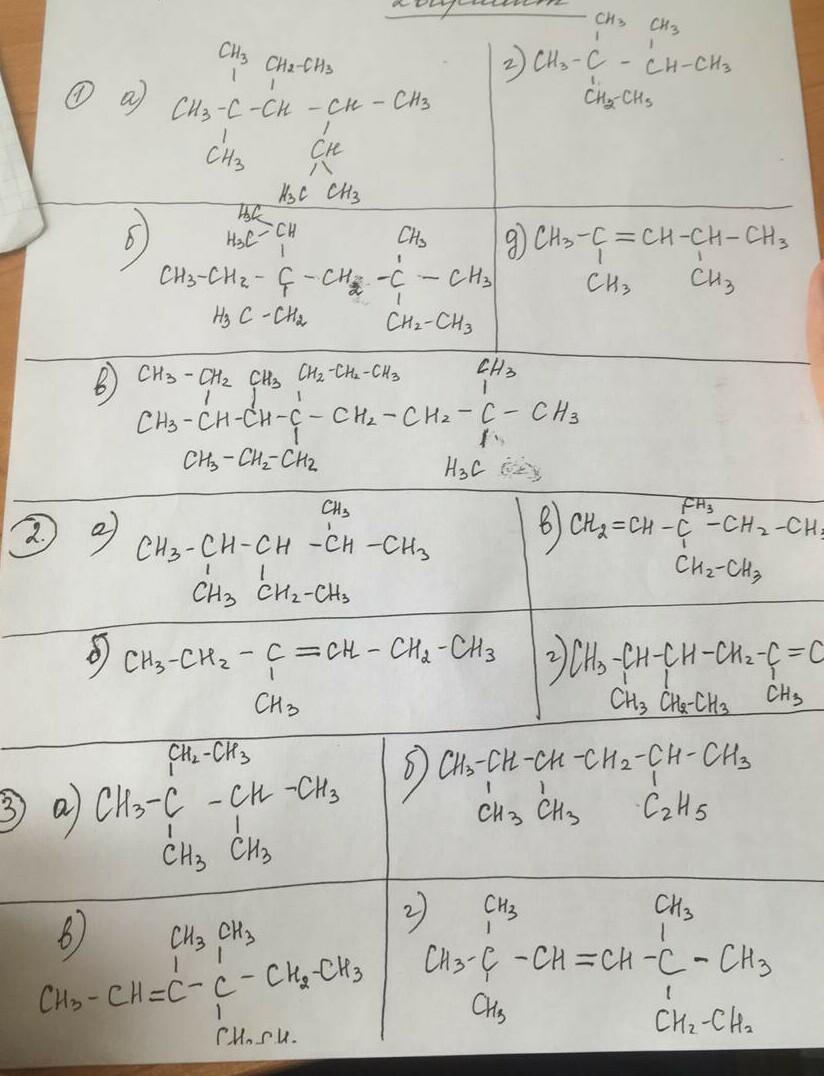 ① а)
CH3
CH2-CH3
CH3-C-CH-CH-CH3
CH3
CH
H3C CH3
г)
CH3
CH3
CH3-C-CH-CH3
CH2-CH3
б)
H3C
H3C-CH
CH3
CH3-CH2-C-CH2-C-CH3
H3C-CH2
CH2-CH3
д) CH3-C=CH-CH-CH3
CH3
CH3
в) CH3-CH2
CH3
CH2-CH2-CH3
CH3
CH3-CH-CH-C-CH2-CH2-C-CH3
CH3-CH2-CH2
H3C
② а)
CH3
CH3-CH-CH-CH-CH3
CH3
CH2-CH3
в)
CH3
CH2=CH-C-CH2-CH3
CH2-CH3
б) CH3-CH2-C=CH-CH2-CH3
CH3
г) CH3-CH-CH-CH2-C=C
CH3
CH2-CH3
CH3
③ а)
CH2-CH3
CH3-C-CH-CH3
CH3
CH3
б) CH3-CH-CH-CH2-CH-CH3
CH3
CH3
C2H5
в)
CH3
CH3
CH3-CH=C-C-CH2-CH3
г)
CH3
CH3
CH3-C-CH=CH-C-CH3
CH3
CH2-CH2